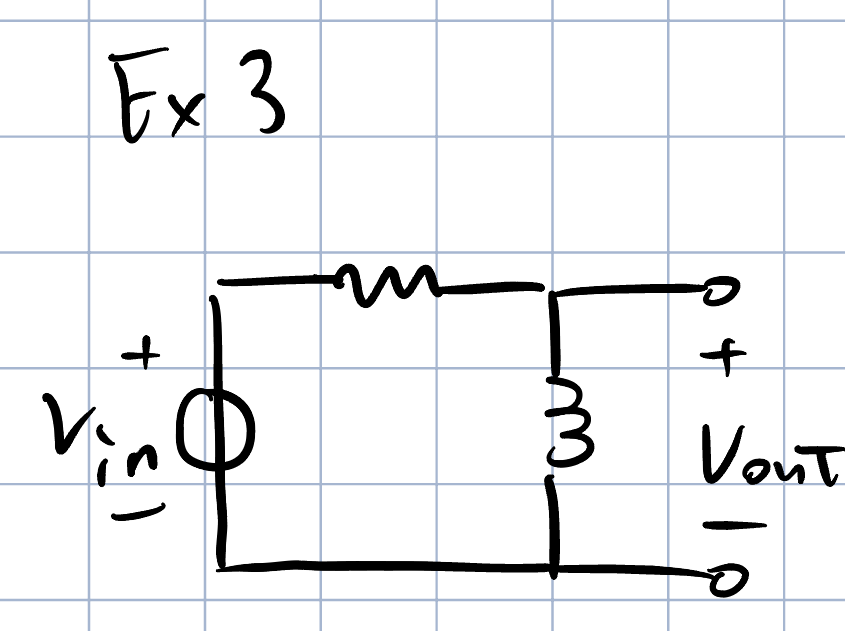 Ex 3
+ +
Vin Vout
− −